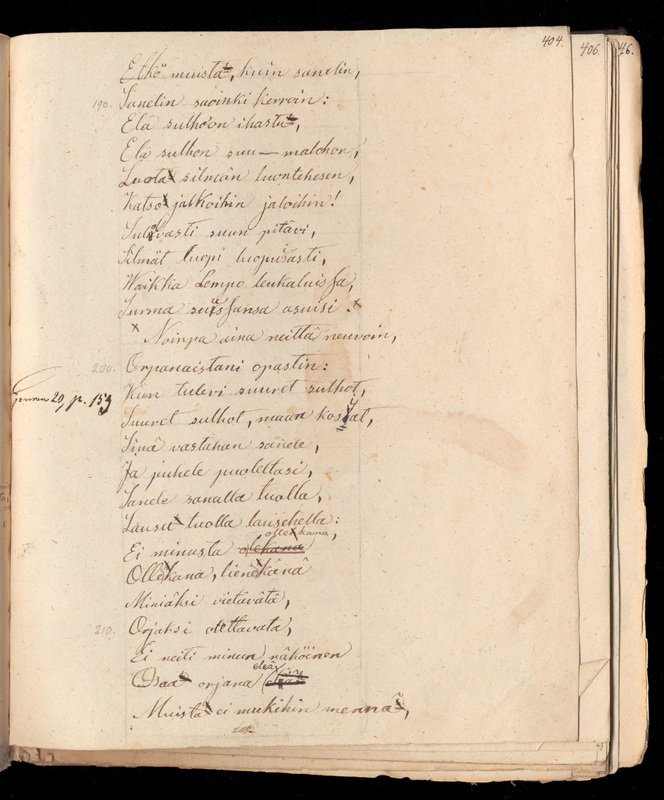 404.
406.
46.
Etkö muista, kuin sanelin,
190. Sanelin saoinki kerroin:
Elä sulhoon ihastu,
Elä sulhon suu-malohon,
Luota silmän luontehesen,
Katso jalkoihin jaloihin!
Suloivasti suun pitävi,
Silmät luopi luopiisasti,
Waikka Lempo leukaluissa,
Surma suussansa asuisi.
Noinpa aina neittä neuvoin,
200. Orpanaistani opastin:
Kun tulevi suuret sulhot,
20, p. 153
Suuret sulhot, maan kosjat,
Sinä vastahan sanele,
Ja puhele puoleltasi,
Sanele sanalla tuolla,
Lausu tuolla lausehella:
Ei minusta ollekana,
Ollekana, lienekänä
Miniäksi vietävätä,
210. Orjaksi otettavata,
Ei neiti minun näköinen
Osaa orjana eleä
Muista ei mukihin mennä,